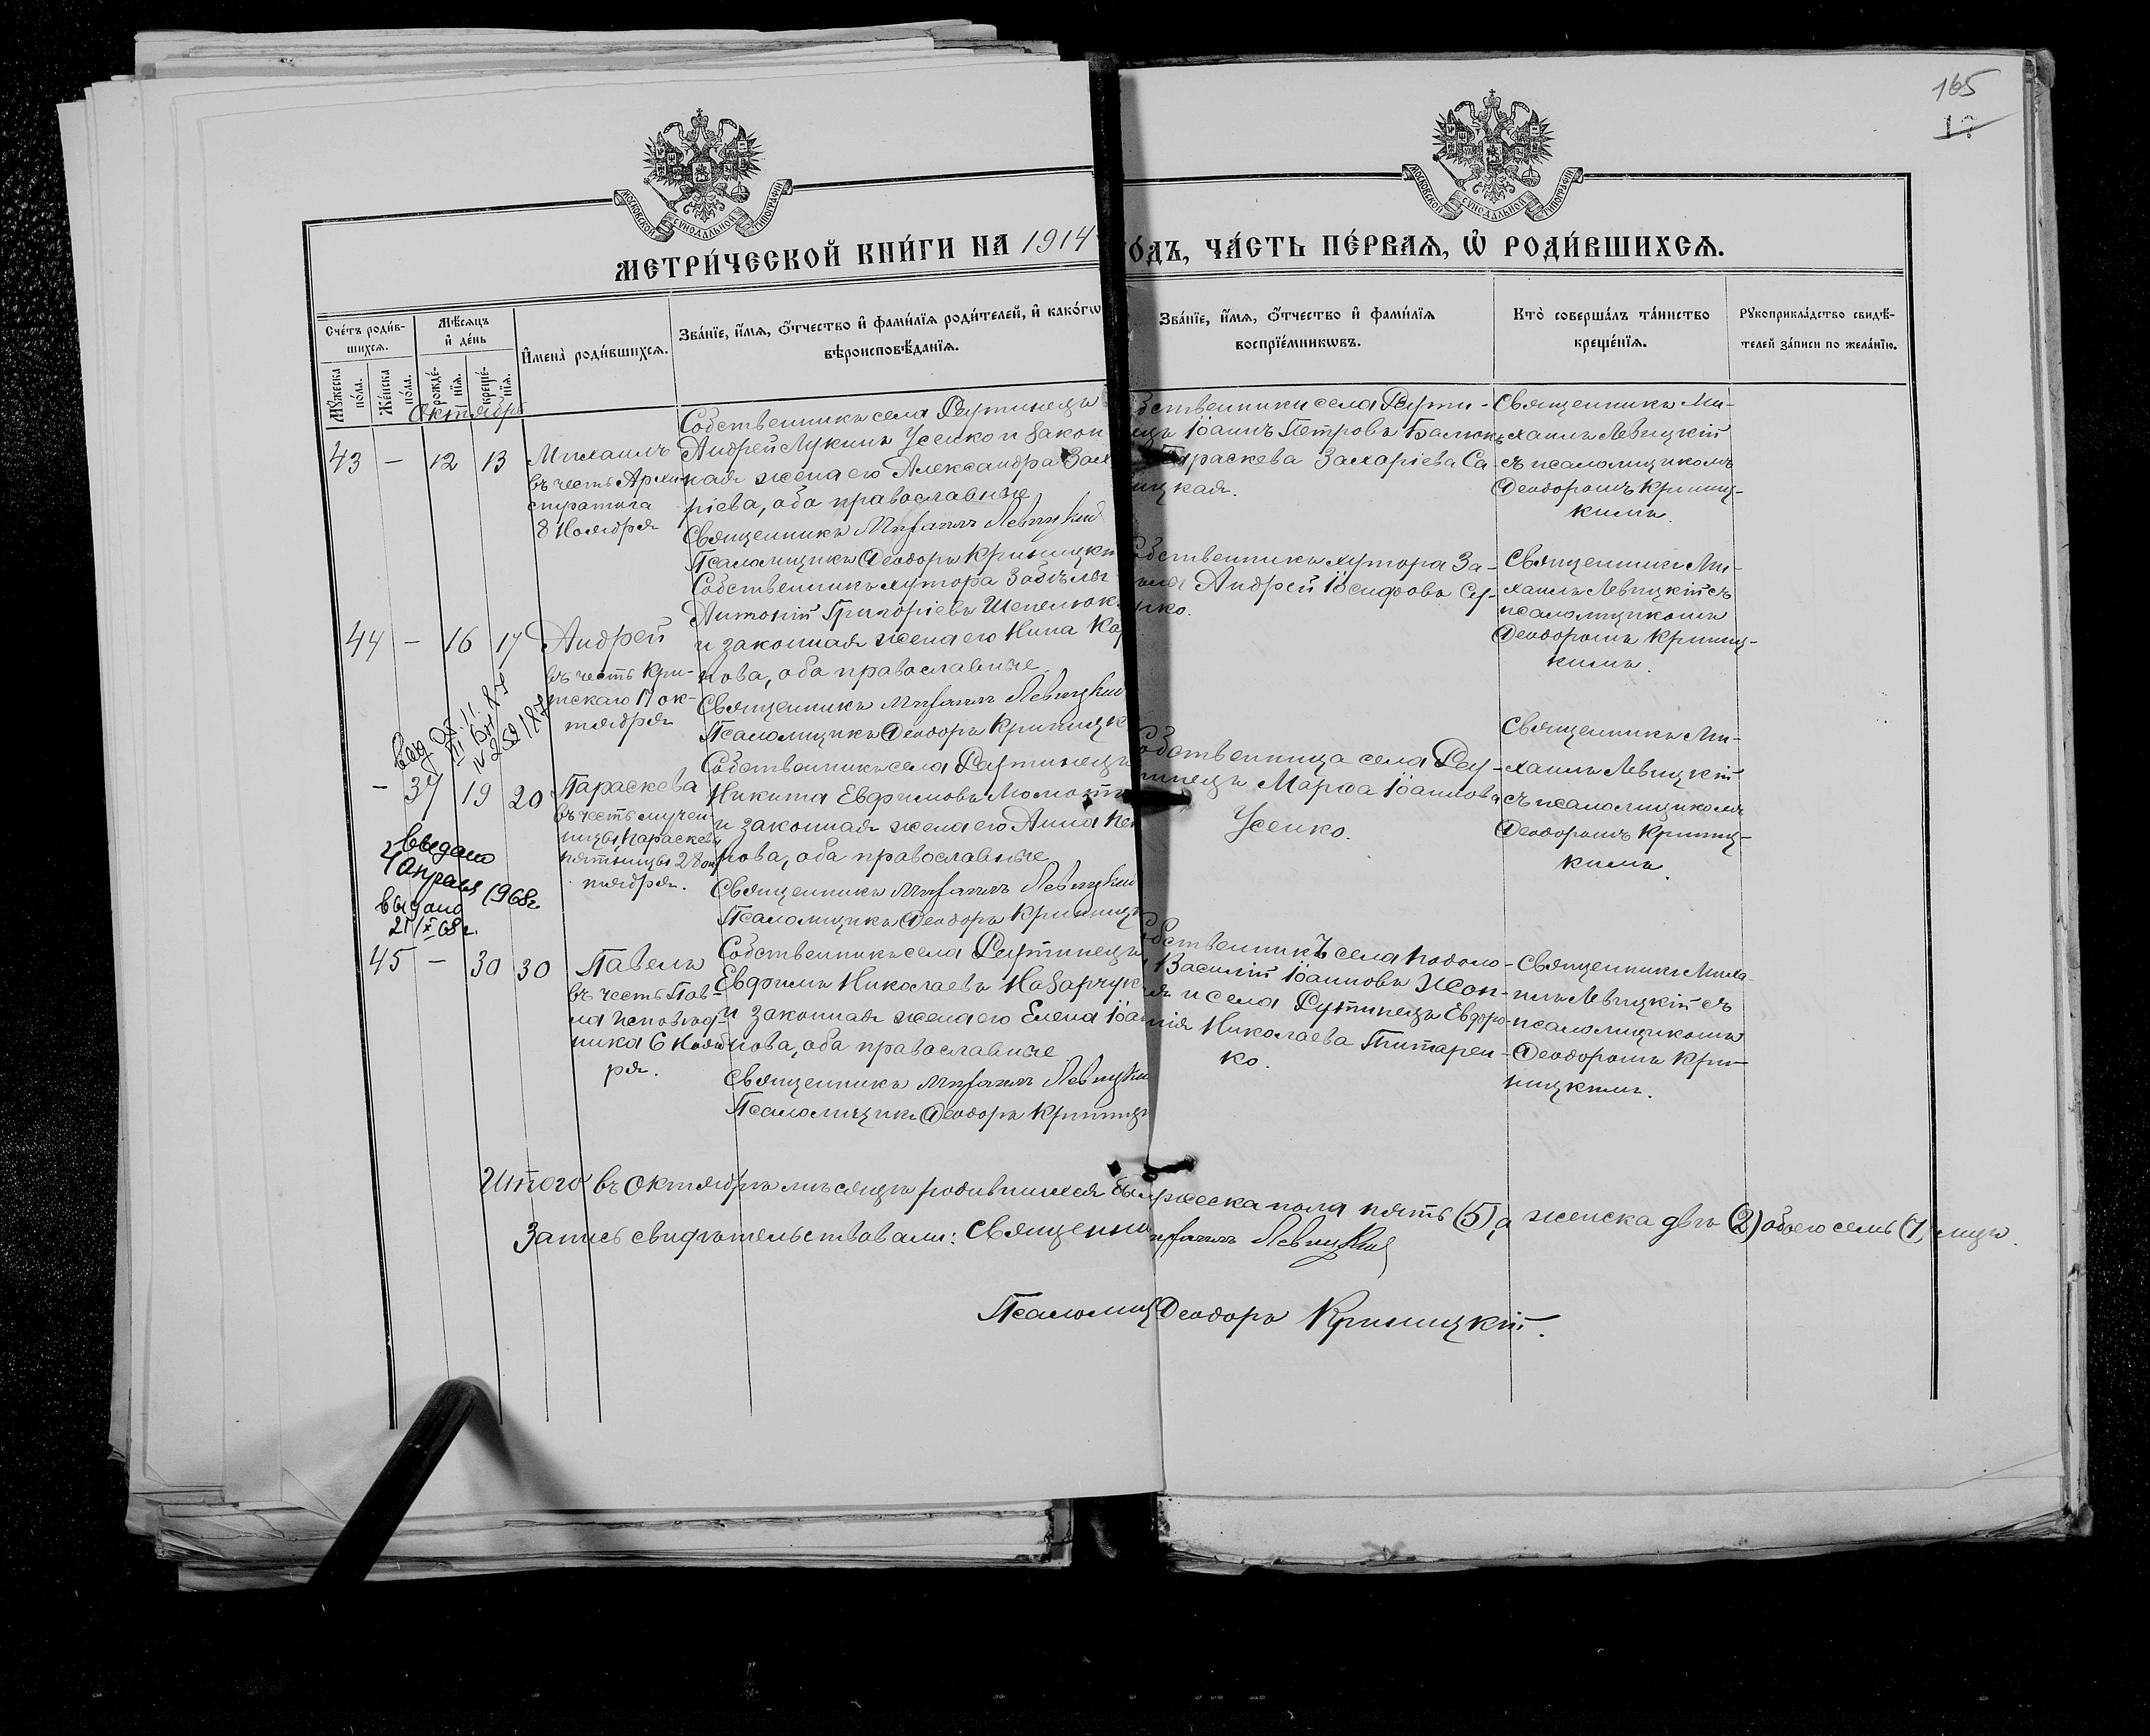 165
17
МОСКОВСКОЙ СѴНОДАЛЬНОЙ ТИПОГРАФІИ
МОСКОВСКОЙ СѴНОДАЛЬНОЙ ТИПОГРАФІИ
МЕТРИ́ЧЕСКОЙ КНИ́ГИ НА 1914
ГО́ДЪ, ЧА́СТЬ ПЕ́РВАѦ, Ѡ҆ РОДИ́ВШИХСѦ.
Сче́тъ роди́в-
шихсѧ.
Мꙋ́жеска по́ла.
Же́нска по́ла.
Мѣ́сѧцъ и҆ де́нь
рожде́-нїѧ.
креще́-нїѧ.
И҆мена̀ роди́вшихсѧ.
Зва́нїе, и҆́мѧ, ѻ҆́тчество и҆ фами́лїѧ роди́телей, и҆ како́гѡ
вѣроисповѣ́данїѧ.
Зва́нїе, и҆́мѧ, ѻ҆́тчество и҆ фами́лїѧ
воспрїе́мникѡвъ.
Кто̀ соверша́лъ та́инство
креще́нїѧ.
Рꙋкоприкла́дство свидѣ́-
телей за́писи по жела́нїю.
Октябрь
43 — 12 13
Михаилъ
въ честь Архи-
стратига
8 Ноября
Собственникъ села
Андрей Лукинъ Усенко и закон
ная жена его Александра Заха
ріева, оба православные
Священникъ Михаилъ Левицкій
Псаломщикъ Ѳеодоръ Криницкі
бственники села
Іоаннъ Петровъ
Параскева Захаріева Са-
ицкая.
Священникъ Ми-
хаилъ Левицкій
съ псаломщикомъ
Ѳеодоромъ Криниц-
кимъ.
44 — 16 17
Андрей
въ честь Кри-
тскаго 17 ок-
тября
Собственникъ хутора Забѣлы
Антоній Григоріевъ Шепелюк
и законная жена его Нина Кар
пова, оба православные.
Священникъ Михаилъ Левицкій
Псаломщикъ Ѳеодоръ Криницк
бственникъ хутора За-
Андрей Іосифовъ Су-
Священникъ Ми-
хаилъ Левицкій съ
псаломщикомъ
Ѳеодоромъ Криниц-
кимъ.
— 37 19 20
Параскева
въ честь мучен-
ницы Параскевы
пятницы 28 ок
тября.
Собственникъ села
Никита Евфимовъ
и законная жена его Анна
нова, оба православные
Священникъ Михаилъ Левицкій
Псаломщикъ Ѳеодоръ Криницк
бственница села
Марѳа Іоаннова
Усенко.
Священникъ Ми-
хаилъ Левицкій
съ псаломщикомъ
Ѳеодоромъ Криниц-
кимъ.
выдано
4 апреля 1968г
выдано
21/X 68 г.
45 — 30 30
Павелъ
въ честь Пав-
ла исповѣд-
ника 6 Нояб
ря.
Собственникъ села
Евфимъ Николаевъ Назарчук
и законная жена его Елена Іоан
нова, оба православные
Священникъ Михаилъ Левицкій
Псаломщикъ Ѳеодоръ Криницк
бственникъ села
Василій Іоанновъ
и села Евфро-
нія Николаева Титарен-
ко.
Священникъ Миха-
илъ Левицкій съ
псаломщикомъ
Ѳеодоромъ Кри-
ницкимъ.
Итого въ Октябрѣ мѣсяцѣ родившихся было
жеска пола пять (5), а женска двѣ (2) обоего семь (7) лицъ.
Запись свидѣтельствовали: Священни
ихаилъ Левицкій
Псаломщ
Ѳеодоръ Криницкій.